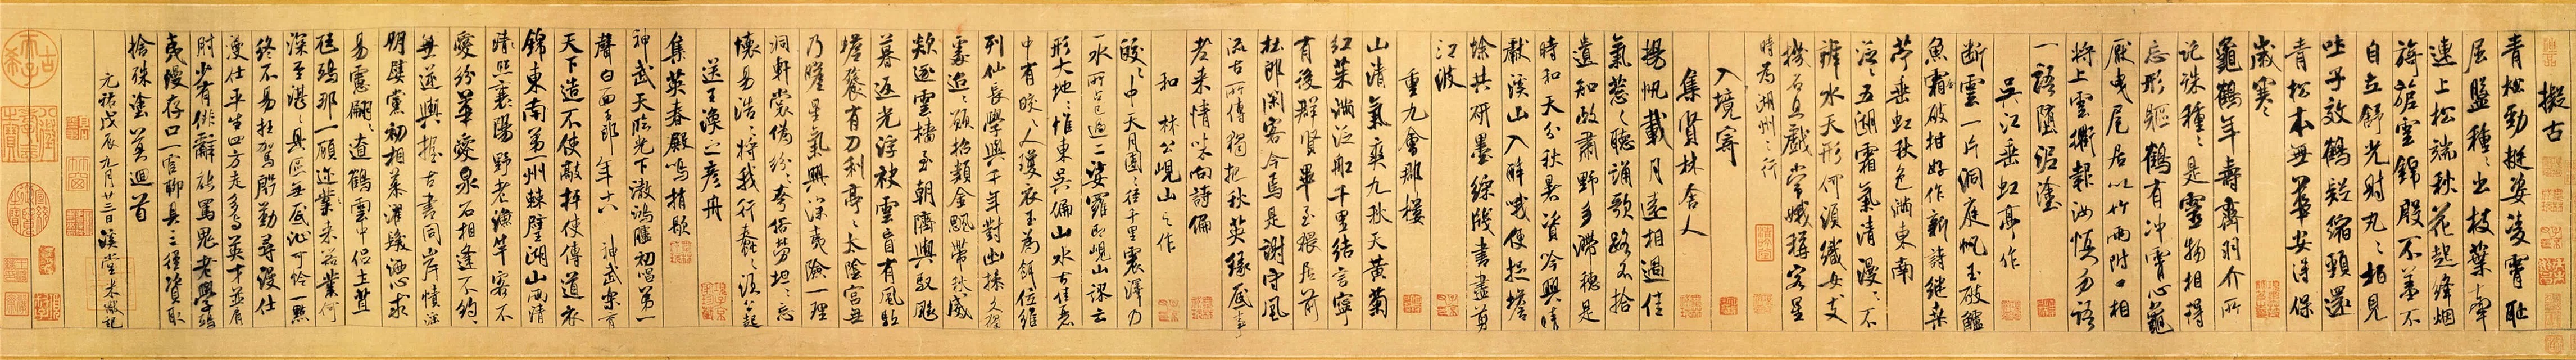 擬古
青松勁挺姿凌霄恥
屈盤種種出枝葉牽
連上松端秋花起絳烟
旖旎雲錦殷不羞不
自立舒光射丸丸柏見
吐子效鶴疑縮頸還
青松本無華安得保
歲寒
龜鶴年壽齊羽介所
託殊種種是靈物相得
忘形軀鶴有冲霄心龜
厭曳尾居以竹兩附口相
將上雲衢報汝慎勿語
一語墮泥塗
吳江垂虹亭作
断雲一片洞庭帆玉破鱸
魚霜破柑好作新詩継桑
苧垂虹秋色滿東南
泛泛五湖霜氣清漫漫不
辨水天形何須織女支
機石且戲常娥稱客星
時為湖州之行
入境寄
集賢林舍人
揚帆載月遠相過佳
氣葱葱聽誦歌路不拾
遺知政肅野多滯穗是
時和天分秋暑資吟興晴
獻溪山入醉哦便捉蟾
蜍共研墨綵牋書盡剪
江波
重九會郡樓
山清氣爽九秋天黃菊
紅茱滿泛船千里結言寧
有後群賢畢至猥居前
杜郎閑客今焉是謝守風
流古所傳獨把秋英緣底事
老来情味向詩偏
和林公峴山之作
皎皎中天月團團徑千里震澤乃
一水所占已過二娑羅即峴山謬云
形大地地惟東吳偏山水古佳麗
中有皎皎人瓊衣玉為餌位維
列仙長學與千年對幽操久獨
處迢迢願招類金飈帶秋威
欻逐雲檣至朝隮輿馭飈
暮返光浮袂雲盲有風馭
蟾餮有刀利亭亭太陰宮無
乃瞻星氣興深夷險一理
洞軒裳偽紛紛夸俗勞坦坦忘
懷易浩浩將我行蠢蠢須公起
送王渙之彥舟
集英春殿鳴捎歇
神武天臨光下澈鴻臚初唱第一
聲白面王郎年十八神武樂育
天下造不使敲枰使傳道衣
錦東南第一州棘璧湖山兩清
照襄陽野老漁竿客不
愛紛華愛泉石相逢不約約
無逆輿握古書同岸幘淫
朋嬖黨初相慕濯髮洒心求
易慮翩翩遼鶴雲中侶土苴
尫鴟那一顧邇来器業何
深至湛湛具區無底沚可憐一點
終不易枉駕殷勤尋漫仕
漫仕平生四方走多與英才並肩
肘少有俳辭能罵鬼老學鴟
夷漫存口一官聊具三徑資取
捨殊塗莫迴首
元祐戊辰九月廿三日溪堂米黻記